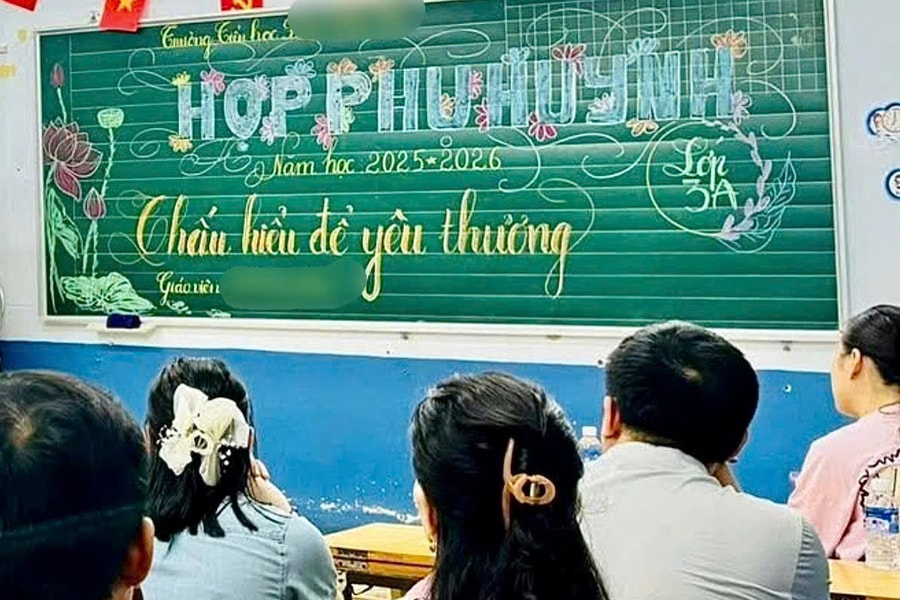 Trường Tiểu học
HỌP PHỤ HUYNH
Năm học 2025*2026
Lớp
3A
Thấu hiểu để yêu thương
Giáo viên